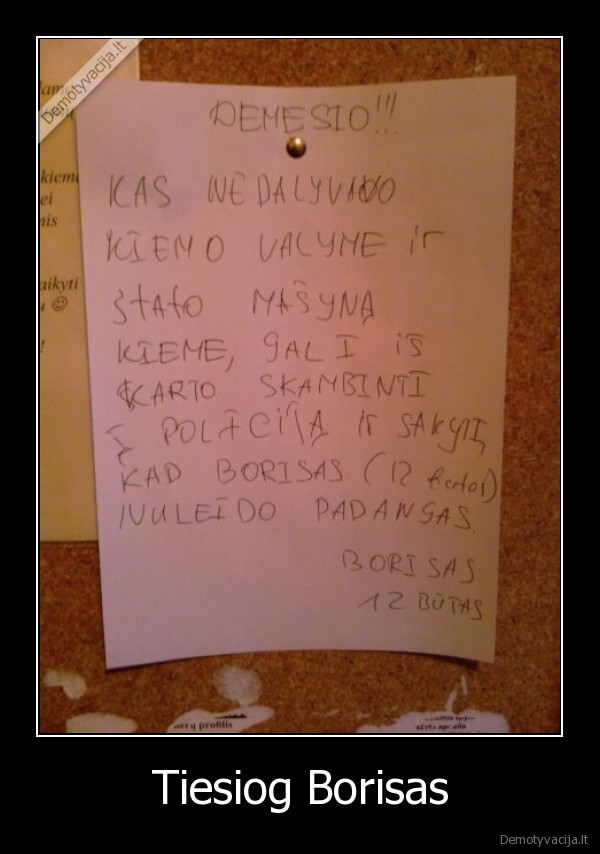 Demotyvacija.lt
kieme
ei
nis
aikyti
DEMESIO!!!
KAS NEDALYVAVO
KIEMO VALYME ir
STATO MAŠYNĄ
KIEME, GALI iš
KARTO SKAMBINTI
Į POLICIJĄ Ir SAKYTI,
KAD BORISAS (12 butas)
NULEIDO PADANGAS.
BORISAS
12 BUTAS
profilis
Tiesiog Borisas
Demotyvacija.lt